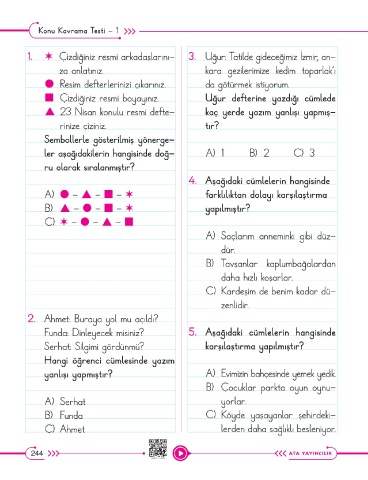 Konu Kavrama Testi - 1
1. ✶ Çizdiğiniz resmi arkadaşlarını-
za anlatınız.
● Resim defterlerinizi çıkarınız.
■ Çizdiğiniz resmi boyayınız.
▲ 23 Nisan konulu resmi defte-
rinize çiziniz.
Sembollerle gösterilmiş yönerge-
ler aşağıdakilerin hangisinde doğ-
ru olarak sıralanmıştır?
A) ● - ▲ - ■ - ✶
B) ▲ - ● - ■ - ✶
C) ✶ - ● - ▲ - ■
2. Ahmet: Buraya yol mu açıldı?
Funda: Dinleyecek misiniz?
Serhat: Silgimi gördünmü?
Hangi öğrenci cümlesinde yazım
yanlışı yapmıştır?
A) Serhat
B) Funda
C) Ahmet
3. Uğur: Tatilde gideceğimiz İzmir, an-
kara gezilerimize kedim toparlak'ı
da götürmek istiyorum.
Uğur defterine yazdığı cümlede
kaç yerde yazım yanlışı yapmış-
tır?
A) 1 B) 2 C) 3
4. Aşağıdaki cümlelerin hangisinde
farklılıktan dolayı karşılaştırma
yapılmıştır?
A) Saçlarım anneminki gibi düz-
dür.
B) Tavşanlar kaplumbağalardan
daha hızlı koşarlar.
C) Kardeşim de benim kadar dü-
zenlidir.
5. Aşağıdaki cümlelerin hangisinde
karşılaştırma yapılmıştır?
A) Evimizin bahçesinde yemek yedik.
B) Çocuklar parkta oyun oynu-
yorlar.
C) Köyde yaşayanlar şehirdeki-
lerden daha sağlıklı besleniyor.
244
ATA YAYINCILIK